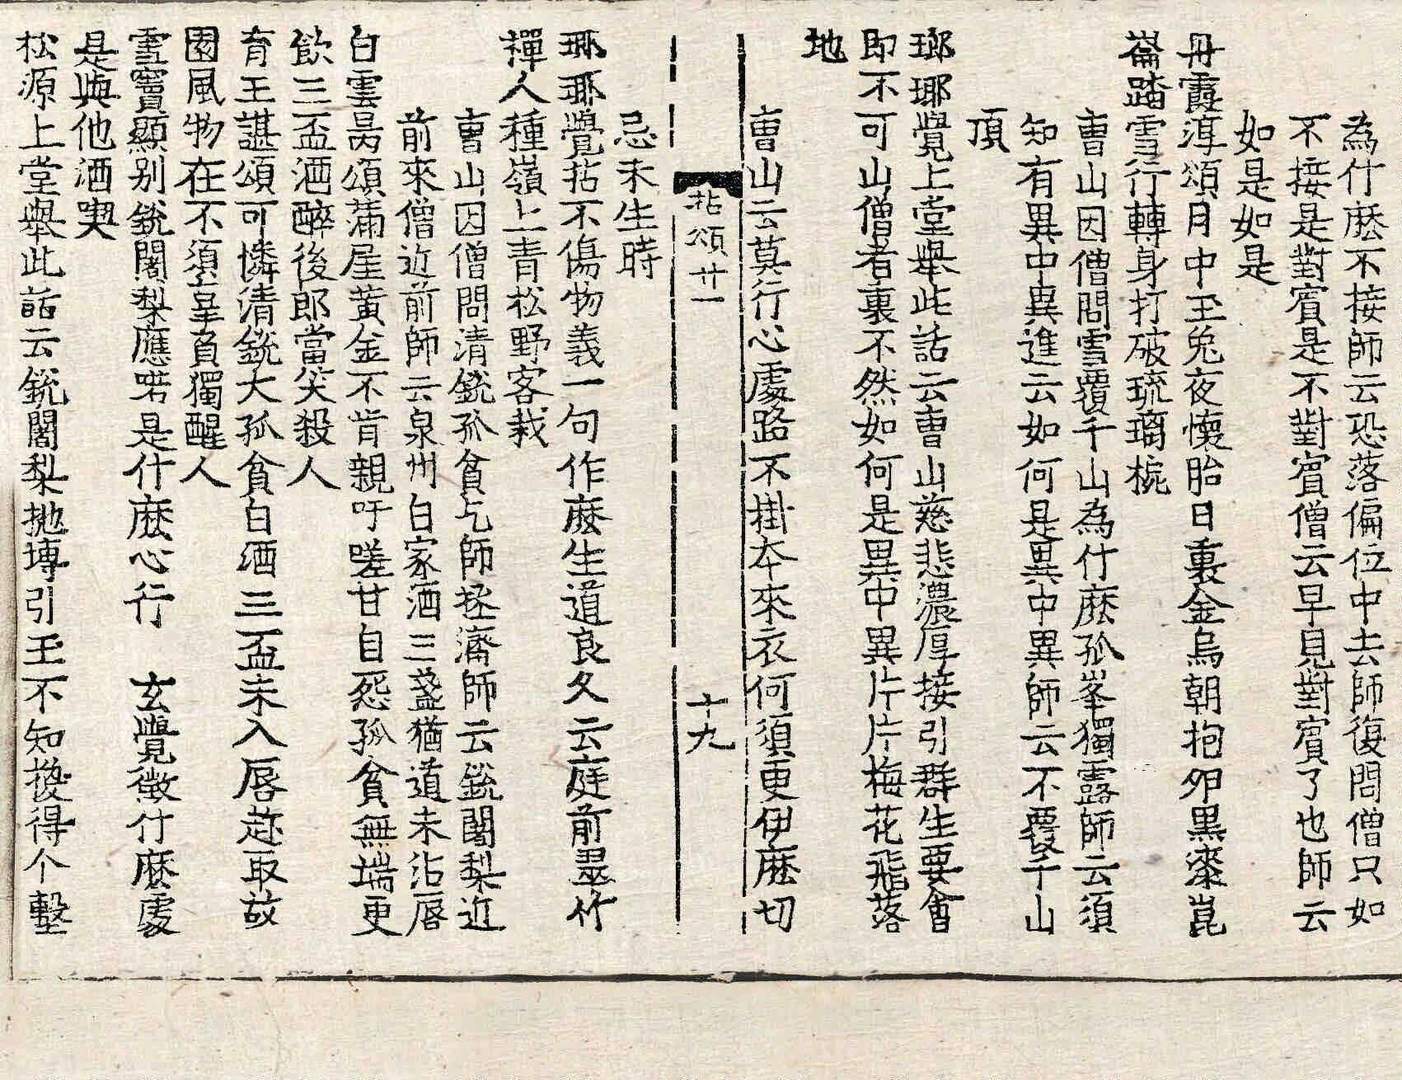 為什麽不接師云恐落偏位中去師復問僧只如
不接是對賓是不對賓僧云早見對賓了也師云
如是如是
丹霞淳頌月中玉兔夜懷胎日裏金烏朝抱卵黑漆崑
崙踏雪行轉身打破琉璃椀
曹山因僧問雪覆千山為什麽孤峯獨露師云須
知有異中異進云如何是異中異師云不覆千山
頂
瑯瑘覺上堂舉此話云曹山慈悲濃厚接引群生要會
即不可山僧者裏不然如何是異中異片片梅花飛落
地
曹山云莫行心處路不掛本來衣何須更伊麽切
拈頌廿一
十九
忌未生時
瑯瑘覺拈不傷物義一句作麽生道良久云庭前翠竹
禪人種嶺上青松野客栽
曹山因僧問清銳孤貧乞師拯濟師云銳闍梨近
前來僧近前師云泉州白家酒三盞猶道未沾唇
白雲昺頌滿屋黃金不肯親吁嗟甘自怨孤貧無端更
飲三盃酒醉後郎當笑殺人
育王諶頌可憐清銳大孤貧白酒三盃未入唇趂取故
園風物在不須辜負獨醒人
雪竇顯别銳闍梨應喏是什麽心行　玄覺徵什麽處
是與他酒喫
松源上堂舉此話云銳闍梨抛塼引玉不知換得个墼